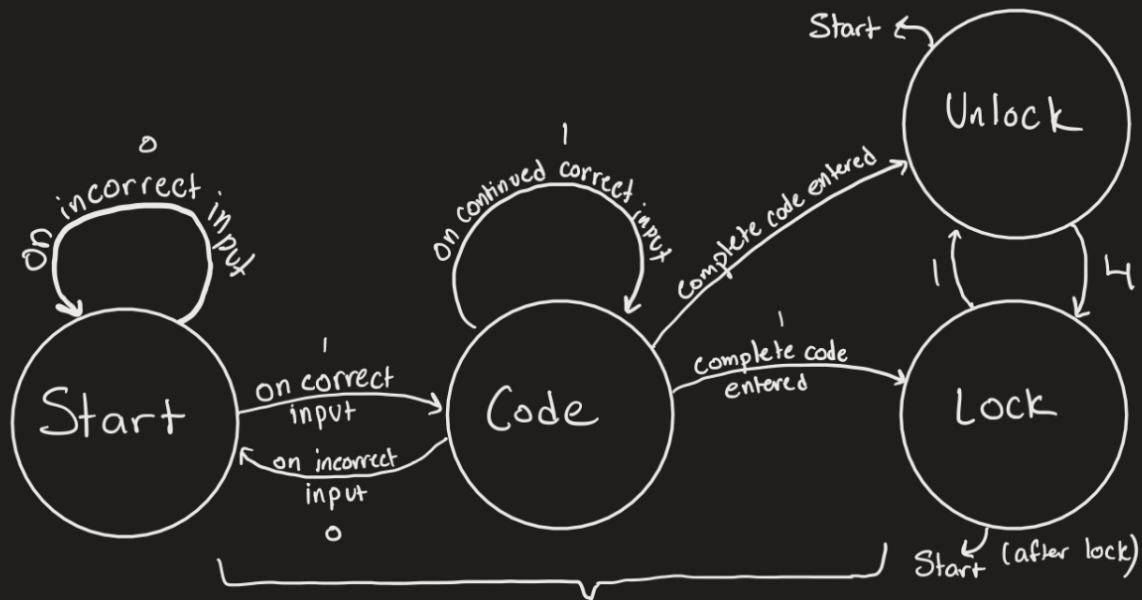 Start
Unlock
0
on incorrect input
1
on continued correct input
complete code entered
1
4
Start
1
on correct
input
Code
1
complete code
entered
Lock
on incorrect
input
0
Start (after lock)